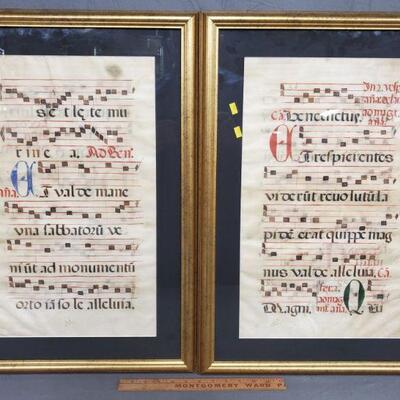 tine a. Ad Ben.
aña. Et valde mane
vna sabbatorũ ve
niũt ad monumentũ
orto iã sole alleluia.
Benedictus.
Et respicientes
viderũt reuolutũ la
pidẽ erat quippe mag
nus valde alleluia. Ca
Magni. Qui
MONTGOMERY WARD